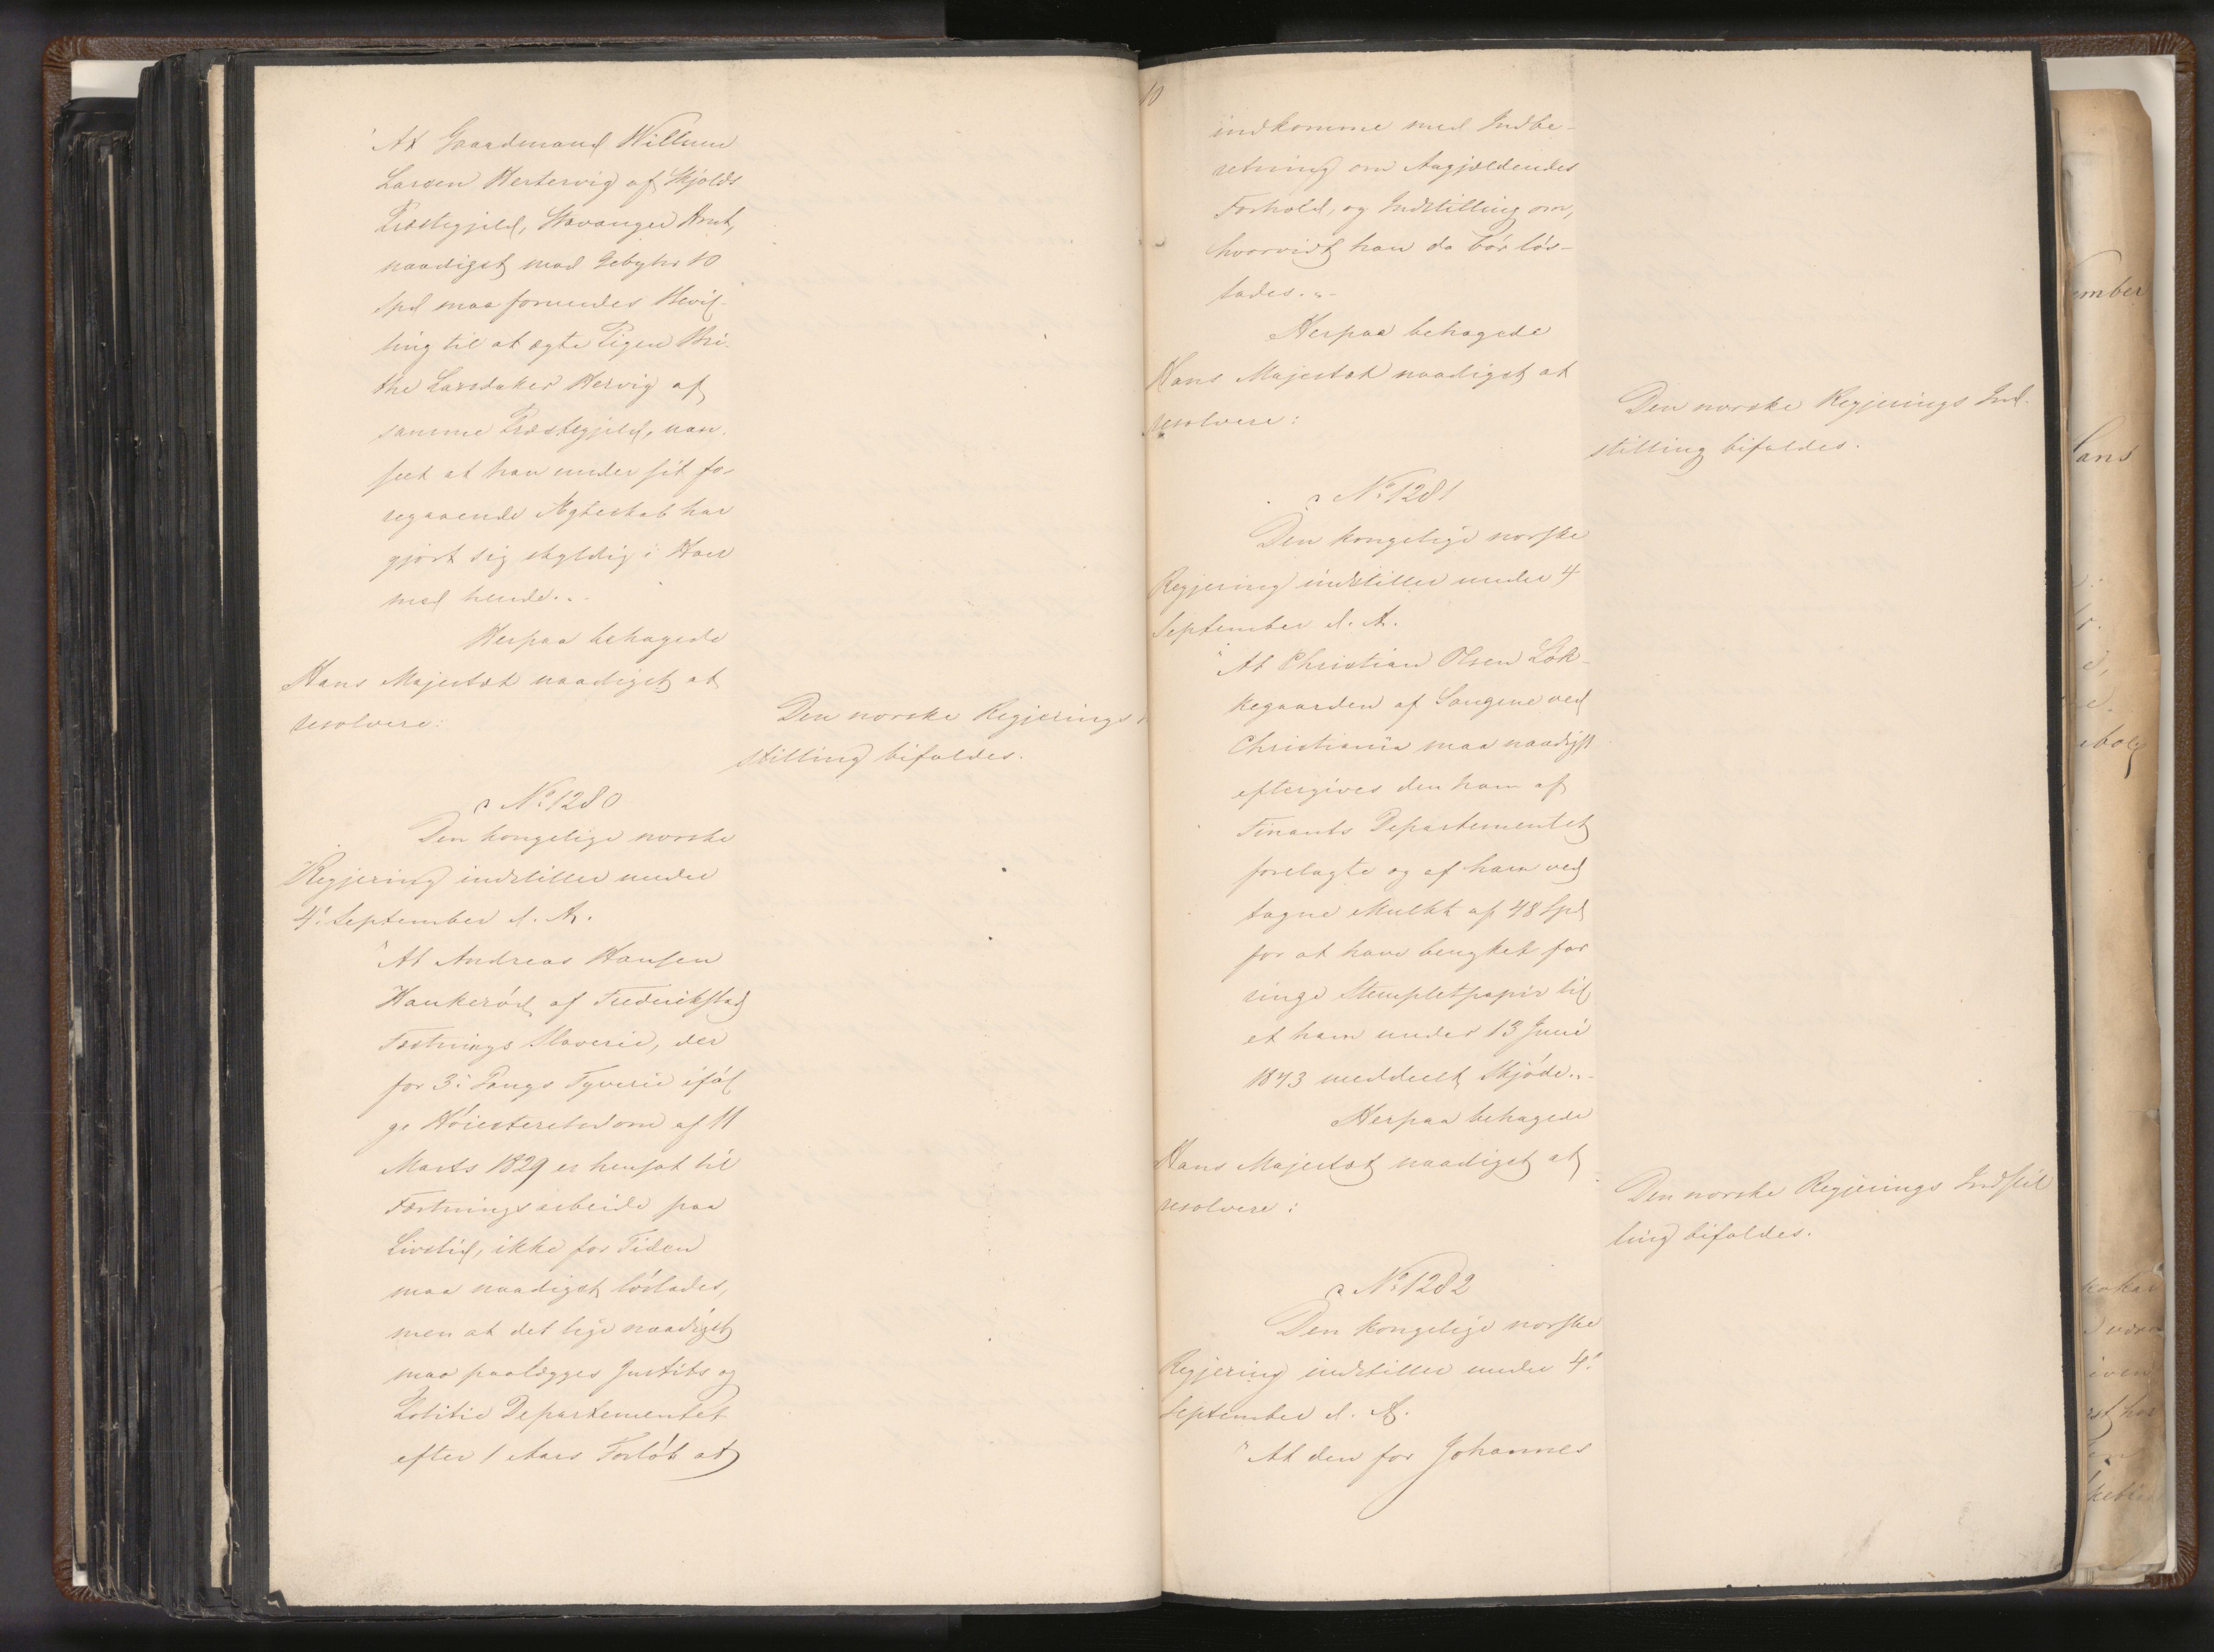 "At Gaardmand Willum
Larsen Hertervig af Skjolds
Præstegjeld, Stavanger Amt,
naadigst mod Gebyhr 10
Spd maa forundes Bevil-
ling til at ægte Pigen Bri-
the Larsdatter Hervig af
samme Præstegjeld, uan-
seet at han under sit fo-
regaaende Ægteskab har
gjort sig skyldig i Hoer
med hende."
Herpaa behagede
Hans Majestæt naadigst at
resolvere:
Den norske Regjerings
stilling bifaldes.
No 1280
Den kongelige norske
Regjering indstiller under
4. September d. A.
"At Andreas Hansen
Haukeröd af Frederikstad
Fæstnings Slaverie, der
for 3. Gangs Tyverie iföl
ge Höiesteretsdom af 11
Marts 1829 er hensat til
Fæstningsarbeide paa
Livstid, ikke for Tiden
maa naadigst löslades,
men at det lige naadigst
maa paalægges Justits og
Politie Departementet
efter 1 Aars Forlöb at
10
indkomme med Indbe-
retning om Angjældendes
Forhold, og Indstilling om,
hvorvidt han da bör lös-
lades."
Herpaa behagede
Hans Majestæt naadigst at
resolvere:
Den norske Regjerings Ind-
stilling bifaldes.
No 1281
Den kongelige norske
Regjering indstiller under 4
September d. A.
"At Christian Olsen Lök-
kegaarden af Sougene ved
Christiania maa naadigst
eftergives den ham af
Finants Departementet
forelagte og af ham ved
tagne Mulkt af 48 Spd
for at have benyttet for
ringe Stempletpapir til
et ham under 13 Juni
1843 meddeelt Skjöde."
Herpaa behagede
Hans Majestæt naadigst at
resolvere:
Den norske Regjerings Indstil
ling bifaldes.
No 1282
Den kongelige norske
Regjering indstiller under 4.
September d. A.
"At den for Johannes